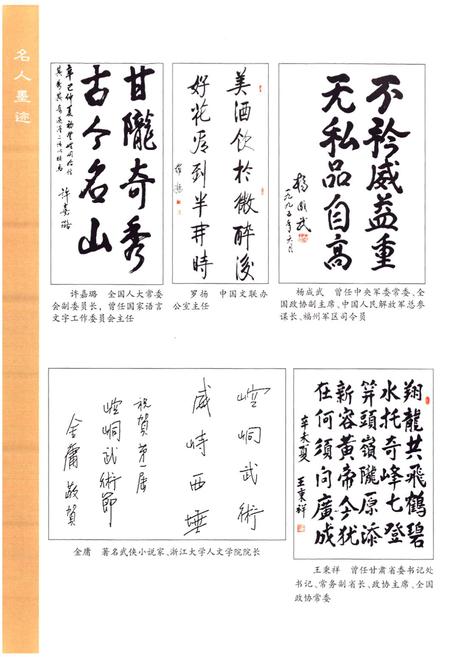 名人墨迹
甘陇奇秀
古今名山
许嘉璐
许嘉璐 全国人大常委
会副委员长,曾任国家语言
文字工作委员会主任
美酒饮於微醉后
好花看到半开时
罗扬
罗扬 中国文联办
公室主任
不矜威益重
无私品自高
杨成武
一九九五年六月
杨成武 曾任中央军委常委、全
国政协副主席、中国人民解放军总参
谋长、福州军区司令员
崆峒武術
威峙西埵
祝賀第一届
崆峒武術節
金庸敬賀
金庸 著名武侠小说家、浙江大学人文学院院长
翔龍共飛鶴碧
水托奇峰七登
笄頭嶺隴原添
新容黄帝今犹
在何须问廣成
辛未夏
王秉祥
王秉祥 曾任甘肃省委书记处
书记、常务副省长、政协主席、全国
政协常委